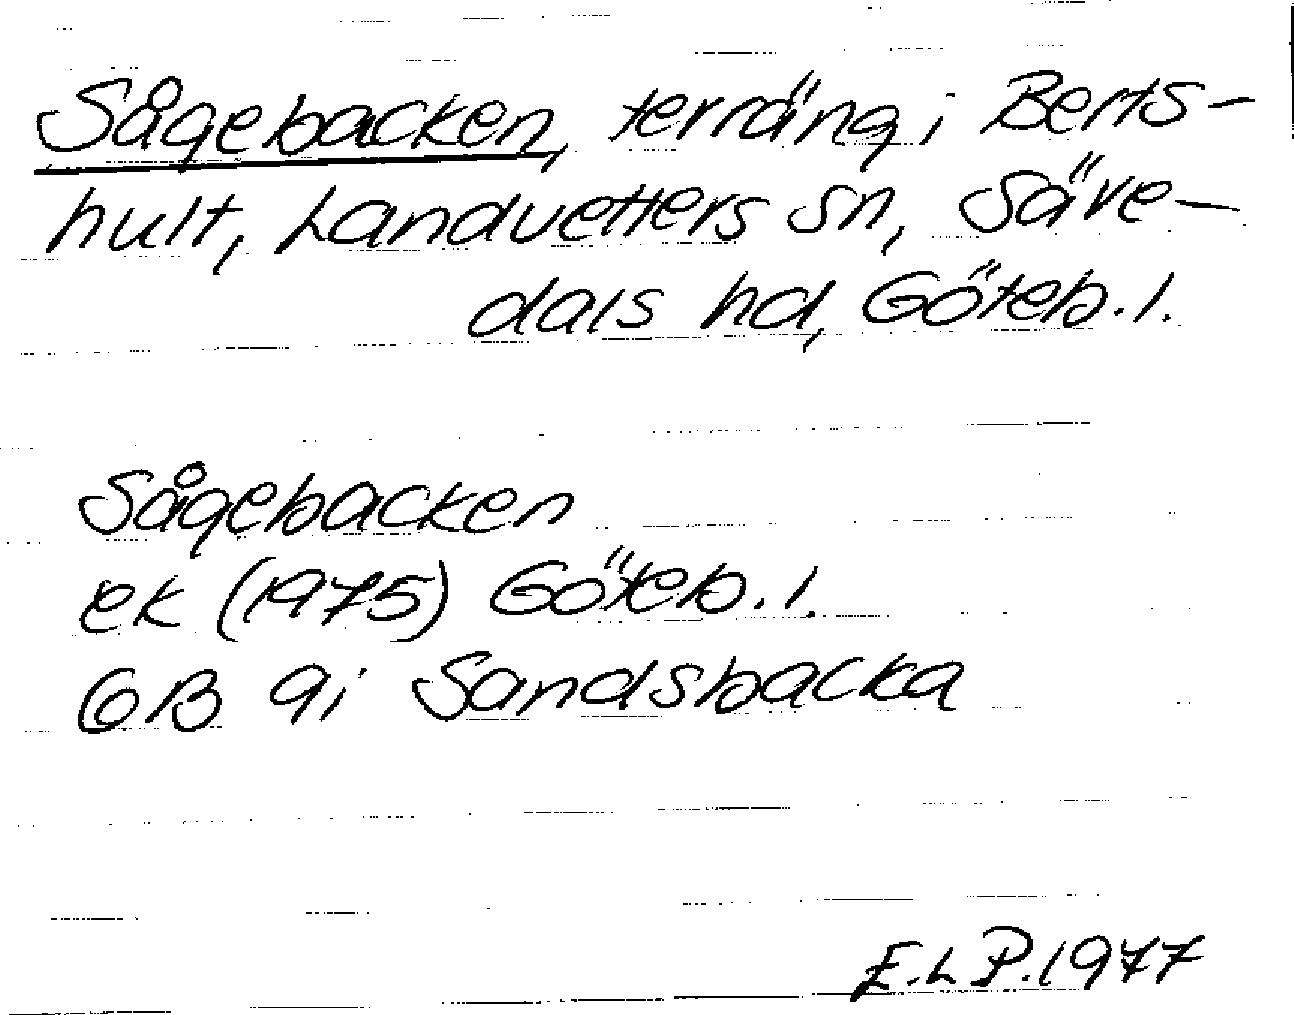 Sågebacken, terräng i Berts-
hult, Landvetters sn, Säve-
dals hd, Göteb. l.
Sågebacken
ek (1975) Göteb. l.
6B 9i Sandsbacka
E.L P. 1977